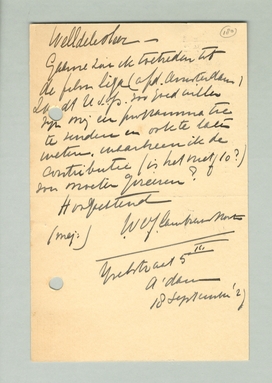 Weledelheer —
Gaarne zou ik toetreden tot
de film liga (afd. Amsterdam)
zoudt U s.v.p. zoo goed willen
zijn mij een programma te
te zenden en ook te laten
weten, waarheen ik de
contributie (is het niet f 10?)
zou moeten gireeren?
Hoogachtend
(mej:)
A'dam
18 September '27